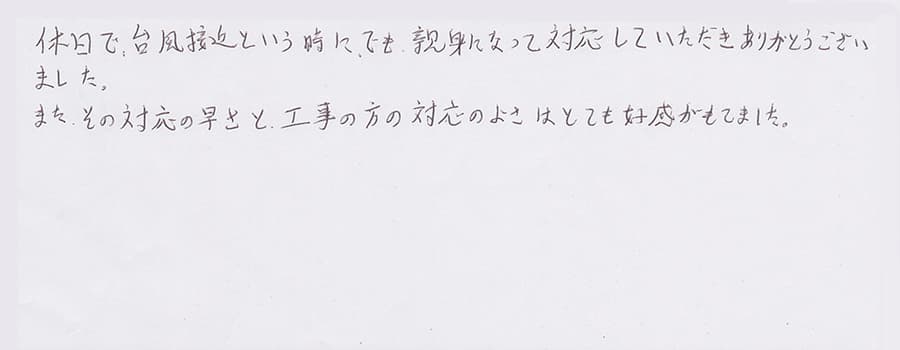 休日で、台風接近という時に、でも、親身になって対応していただきありがとうござい
ました。
また、その対応の早さと、工事の方の対応のよさはとても好感がもてました。